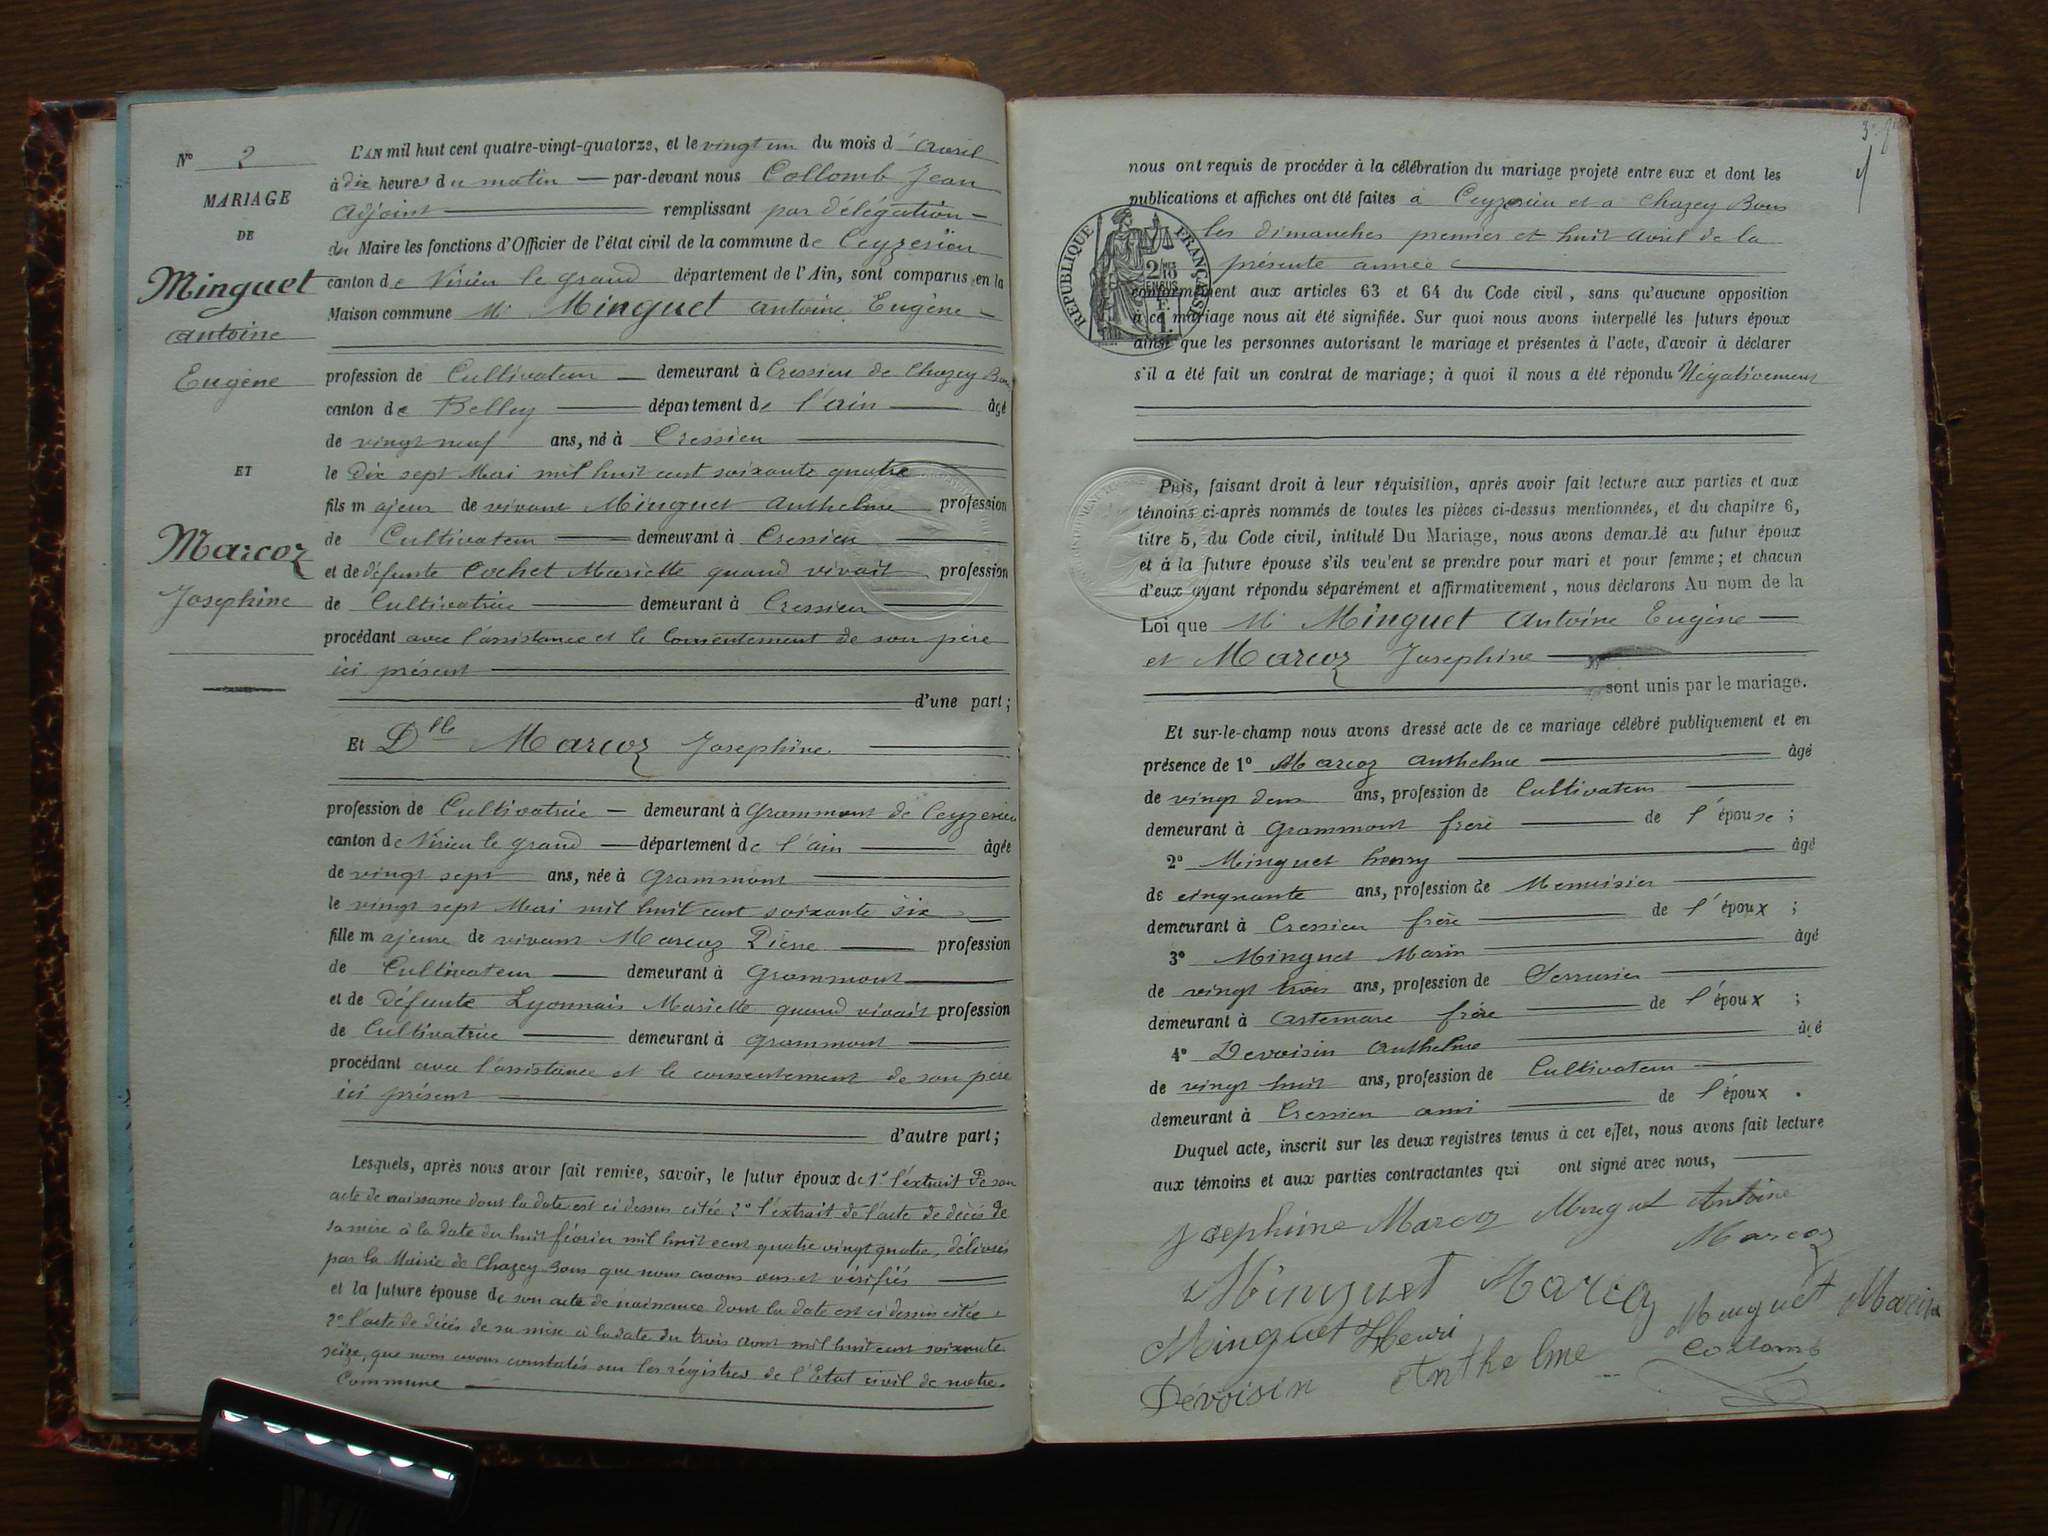 N° 2
MARIAGE
DE
Minguet
Antoine
Eugène
ET
Marcoz
Josephine
L'AN mil huit cent quatre-vingt-quatorze, et le vingt un du mois d'avril
à dix heures du matin par-devant nous Collomb Jean
Adjoint remplissant par délégation
du Maire les fonctions d'Officier de l'état civil de la commune de Ceyzerieu
canton de Virieu le grand département de l'Ain, sont comparus en la
Maison commune Mr Minguet Antoine Eugène
profession de Cultivateur demeurant à Cressieu de Chazey Bons
canton de Belley département de l'ain âgé
de vingt neuf ans, né à Cressieu
le dix sept Mai mil huit cent soixante quatre
fils majeur de vivant Minguet Anthelme profession
de Cultivateur demeurant à Cressieu
et de défunte Cochet Mariette quand vivait profession
de Cultivatrice demeurant à Cressieu
procédant avec l'assistance et le Consentement de son père
ici présent
d'une part;
Et Dlle Marcoz Josephine
profession de Cultivatrice demeurant à Grammont de Ceyzerieu
canton de Virieu le grand département de l'ain âgée
de vingt sept ans, née à Grammont
le vingt sept Mai mil huit cent soixante six
fille majeure de vivant Marcoz Pierre profession
de Cultivateur demeurant à Grammont
et de défunte Lyonnais Mariette quand vivait profession
de Cultivatrice demeurant à Grammont
procédant avec l'assistance et le consentement de son père
ici présent
d'autre part;
Lesquels, après nous avoir fait remise, savoir, le futur époux de 1° l'éxtrait de son
acte de naissance dont la date est ci dessus citée 2° l'extrait de l'acte de décès de
sa mère à la date du huit février mil huit cent quatre vingt quatre, délivrés
par la Mairie de Chazey Bons que nous avons vus et vérifiés
et la future épouse de son acte de naissance dont la date est ci dessus citée
2° l'acte de décès de sa mère à la date du trois août mil huit cent soixante
seize, que nous avons constatés sur les régistres de l'Etat civil de notre
Commune
nous ont requis de procéder à la célébration du mariage projeté entre eux et dont les
publications et affiches ont été faites à Ceyzerieu et à Chazey Bons
les dimanches premier et huit avril de la
présente année
conformément aux articles 63 et 64 du Code civil, sans qu'aucune opposition
à ce mariage nous ait été signifiée. Sur quoi nous avons interpellé les futurs époux
ainsi que les personnes autorisant le mariage et présentes à l'acte, d'avoir à déclarer
s'il a été fait un contrat de mariage; à quoi il nous a été répondu Négativement
RÉPUBLIQUE FRANÇAISE
2/10 EN SUS
F. 1.
Puis, faisant droit à leur réquisition, après avoir fait lecture aux parties et aux
témoins ci-après nommés de toutes les pièces ci-dessus mentionnées, et du chapitre 6,
titre 5, du Code civil, intitulé Du Mariage, nous avons demandé au futur époux
et à la future épouse s'ils veulent se prendre pour mari et pour femme; et chacun
d'eux ayant répondu séparément et affirmativement, nous déclarons Au nom de la
Loi que Mr Minguet Antoine Eugène
et Marcoz Josephine
sont unis par le mariage.
Et sur-le-champ nous avons dressé acte de ce mariage célébré publiquement et en
présence de 1° Marcoz Anthelme âgé
de vingt deux ans, profession de Cultivateur
demeurant à Grammont frère de l'épouse;
2° Minguet henry âgé
de cinquante ans, profession de Menuisier
demeurant à Cressieu frère de l'époux;
3° Minguet Marin âgé
de vingt trois ans, profession de Serrurier
demeurant à Artemare frère de l'époux;
4° Devoisin Anthelme âgé
de vingt huit ans, profession de Cultivateur
demeurant à Cressieu ami de l'époux.
Duquel acte, inscrit sur les deux registres tenus à cet effet, nous avons fait lecture
aux témoins et aux parties contractantes qui ont signé avec nous,
Josephine Marcoz Minguet Antoine
Marcoz
Minguet Marcoz Minguet Marin
Minguet Henri
Collomb
Dévoisin Anthelme